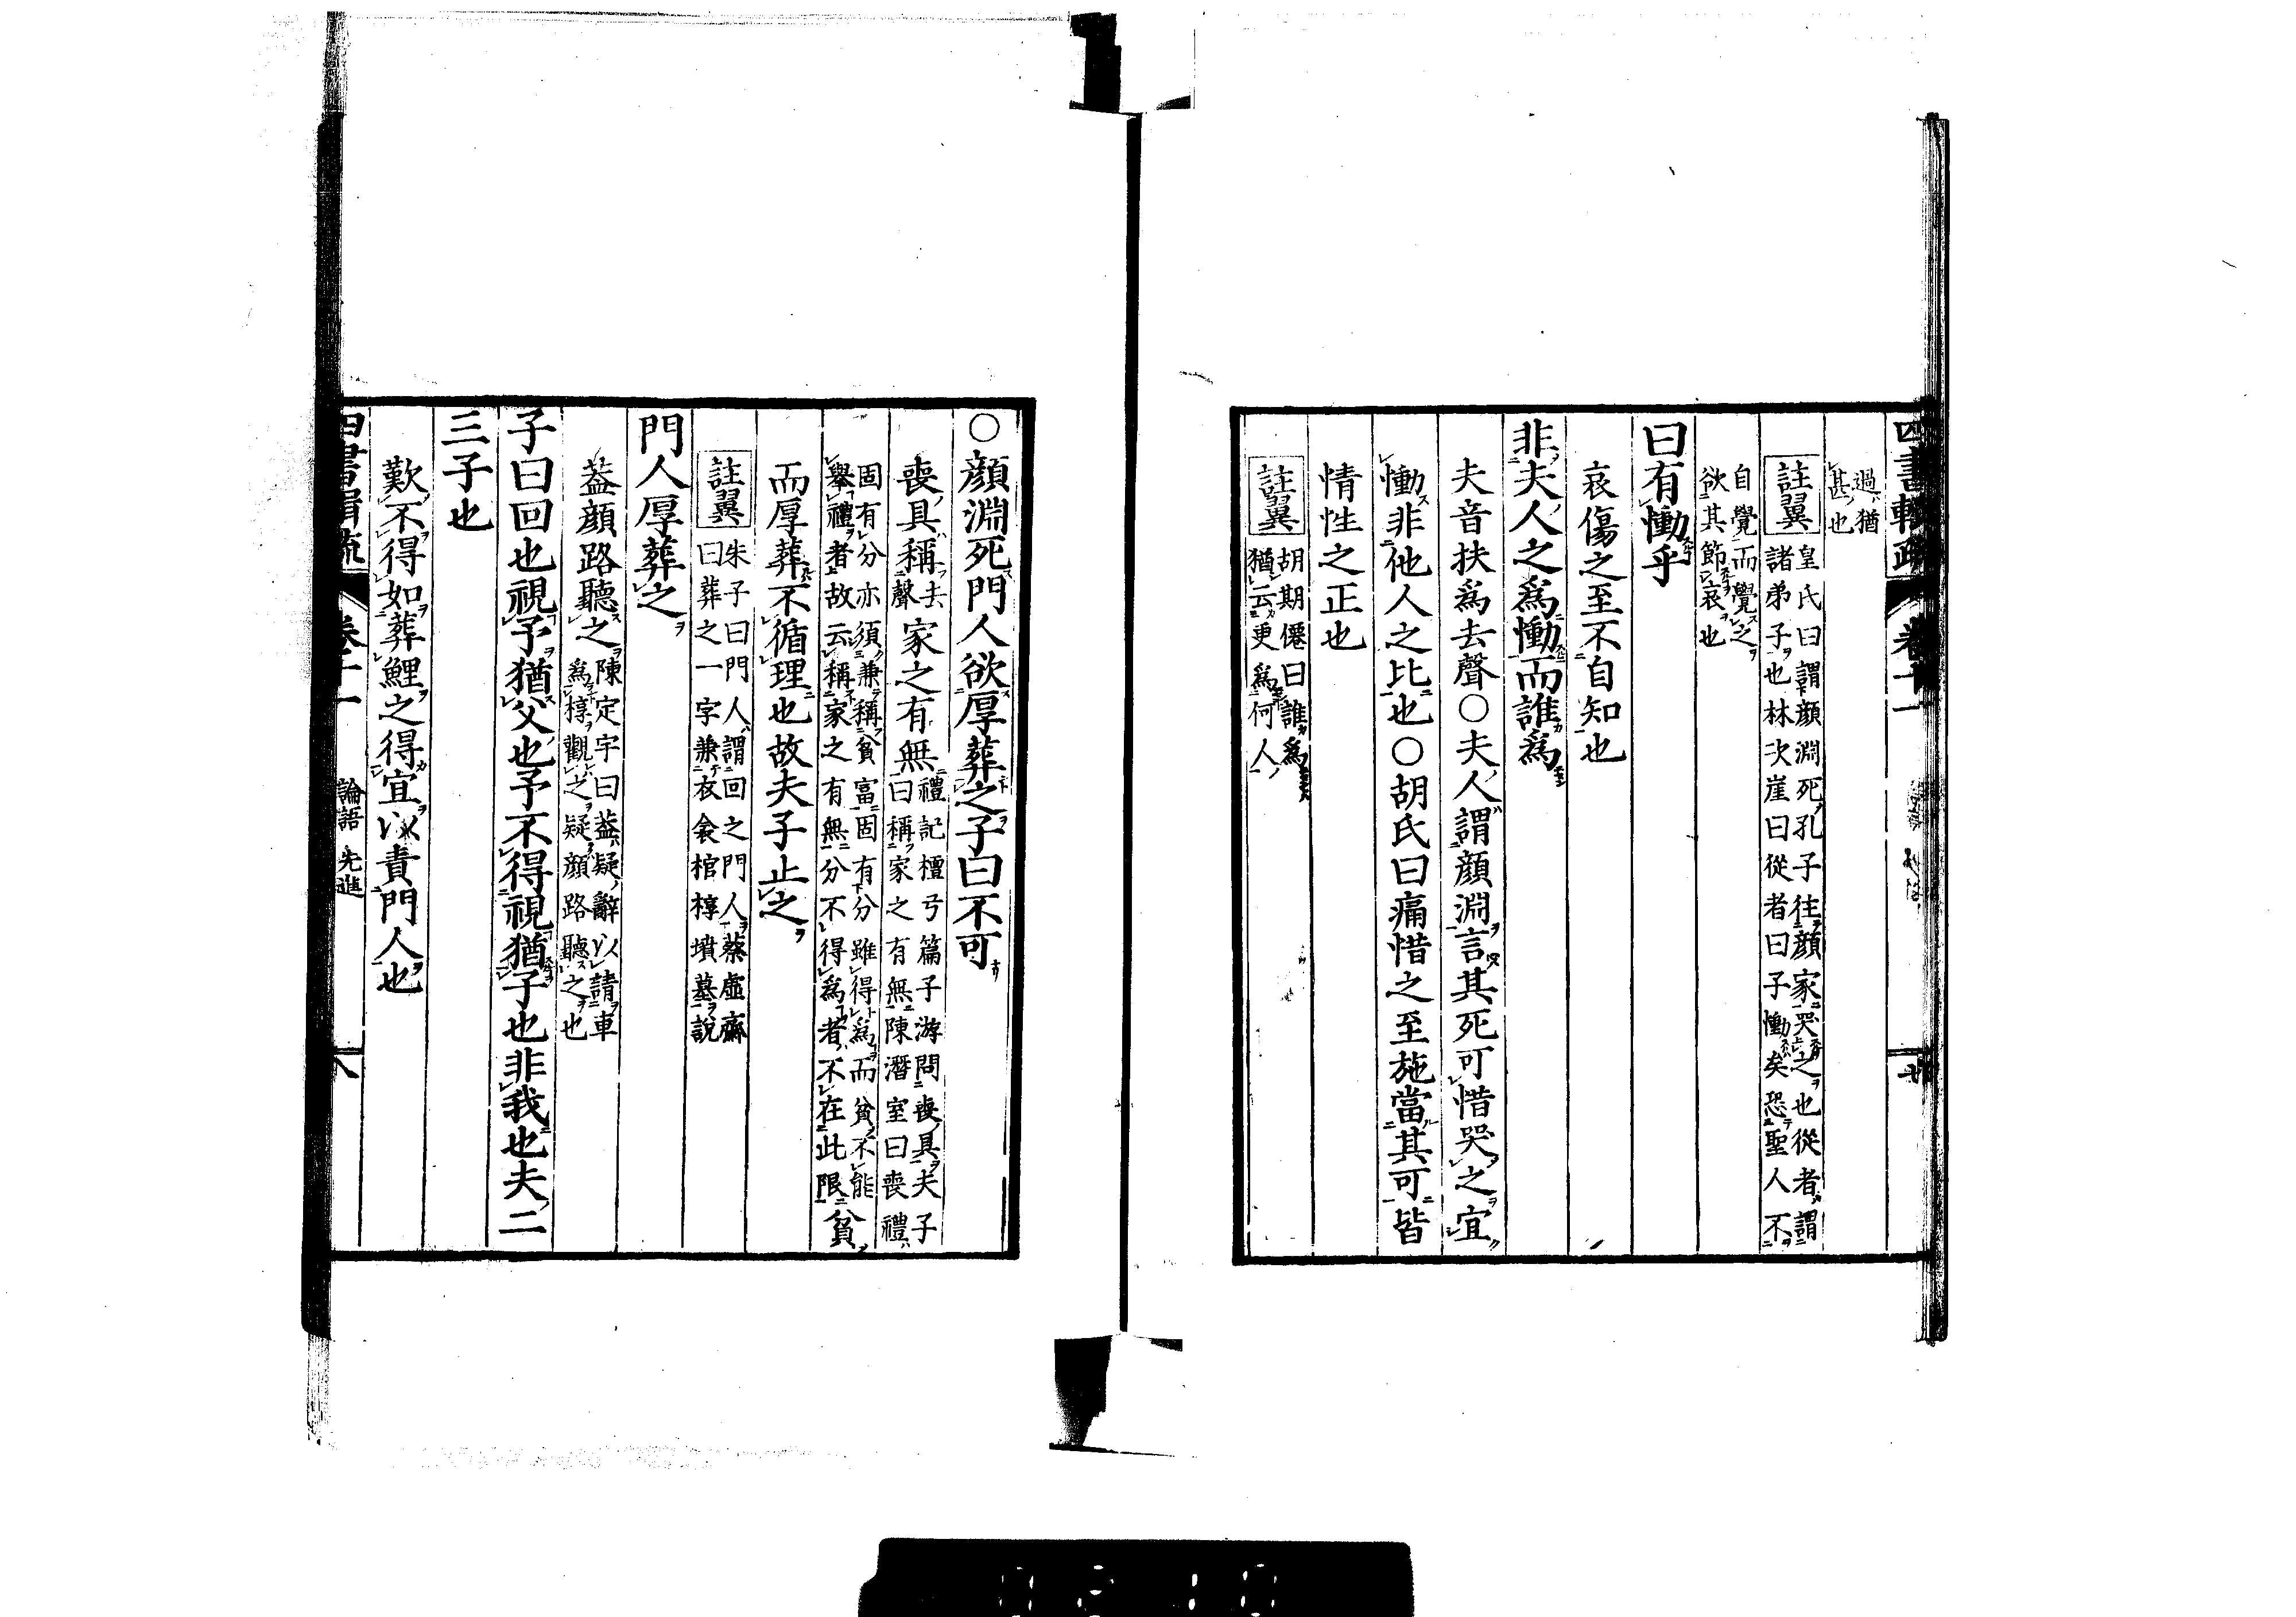 過猶
甚也
註翼
皇氏曰謂顏淵死孔子往顏家哭之也從者謂
諸弟子也林次崖曰從者曰子慟矣恐聖人不
自覺而覺之
欲其節哀也
曰有慟乎
哀傷之至不自知也
非夫人之爲慟而誰爲
夫音扶爲去聲○夫人謂顏淵言其死可惜哭之宜
慟非他人之比也○胡氏曰痛惜之至施當其可皆
情性之正也
註翼
胡期僊曰誰爲
猶云更爲何人
○顏淵死門人欲厚葬之子曰不可
喪具稱去聲家之有無禮記檀弓篇子游問喪具夫子
曰稱家之有無陳潛室曰喪禮
固有分亦須兼稱貧富固有分雖得爲而貧不能
舉禮者故云稱家之有無分不得爲者不在此限貧
而厚葬不循理也故夫子止之
註翼
朱子曰門人謂回之門人蔡虛齋
曰葬之一字兼衣衾棺椁墳墓說
門人厚葬之
葢顏路聽之陳定宇曰葢疑辭以請車
爲椁觀之疑顏路聽之也
子曰回也視予猶父也予不得視猶子也非我也夫二
三子也
歎不得如葬鯉之得宜以責門人也
四書輯疏 卷十一 論語 先進